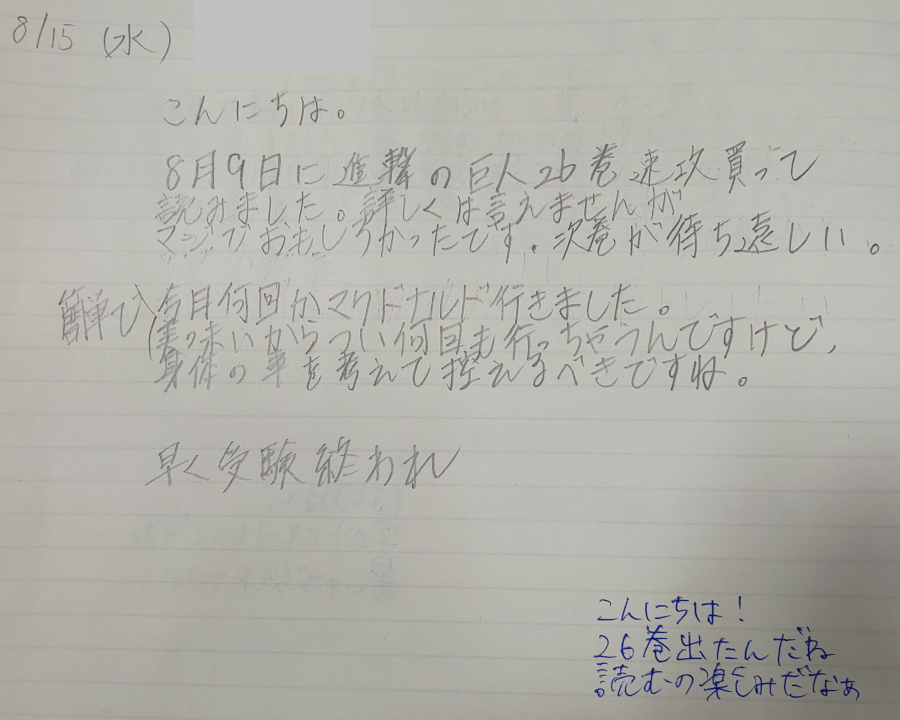 8/15 (水)
こんにちは。
8月9日に進撃の巨人26巻速攻買って
読みました。詳しくは言えませんが
マジでおもしろかったです。次巻が待ち遠しい。
簡単で、今月何回かマクドナルド行きました。
美味いからつい何回も行っちゃうんですけど,
身体の事を考えて控えるべきですね。
早く受験終われ
こんにちは!
26巻出たんだね
読むの楽しみだなぁ